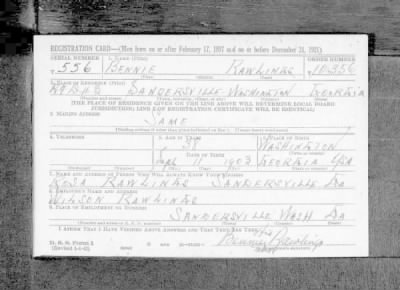 REGISTRATION CARD—(Men born on or after February 17, 1897 and on or before December 31, 1921)
SERIAL NUMBER 1. NAME (Print) ORDER NUMBER
556 BENNIE RAWLINGS 10356
(First) (Middle) (Last)
2. PLACE OF RESIDENCE (Print)
SANDERSVILLE WASHINGTON GEORGIA
[THE PLACE OF RESIDENCE GIVEN ON THE LINE ABOVE WILL DETERMINE LOCAL BOARD
JURISDICTION; LINE 2 OF REGISTRATION CERTIFICATE WILL BE IDENTICAL]
3. MAILING ADDRESS
SAME
4. TELEPHONE 5. AGE IN YEARS 6. PLACE OF BIRTH
38 WASHINGTON
DATE OF BIRTH
Sept 11 1903 GEORGIA USA
7. NAME AND ADDRESS OF PERSON WHO WILL ALWAYS KNOW YOUR ADDRESS
ROSA RAWLINGS SANDERSVILLE GA
8. EMPLOYER'S NAME AND ADDRESS
WILSON RAWLINGS
9. PLACE OF EMPLOYMENT OR BUSINESS
SANDERSVILLE WASH GA
I AFFIRM THAT I HAVE VERIFIED ABOVE ANSWERS AND THAT THEY ARE TRUE.
Bennie Rawlings